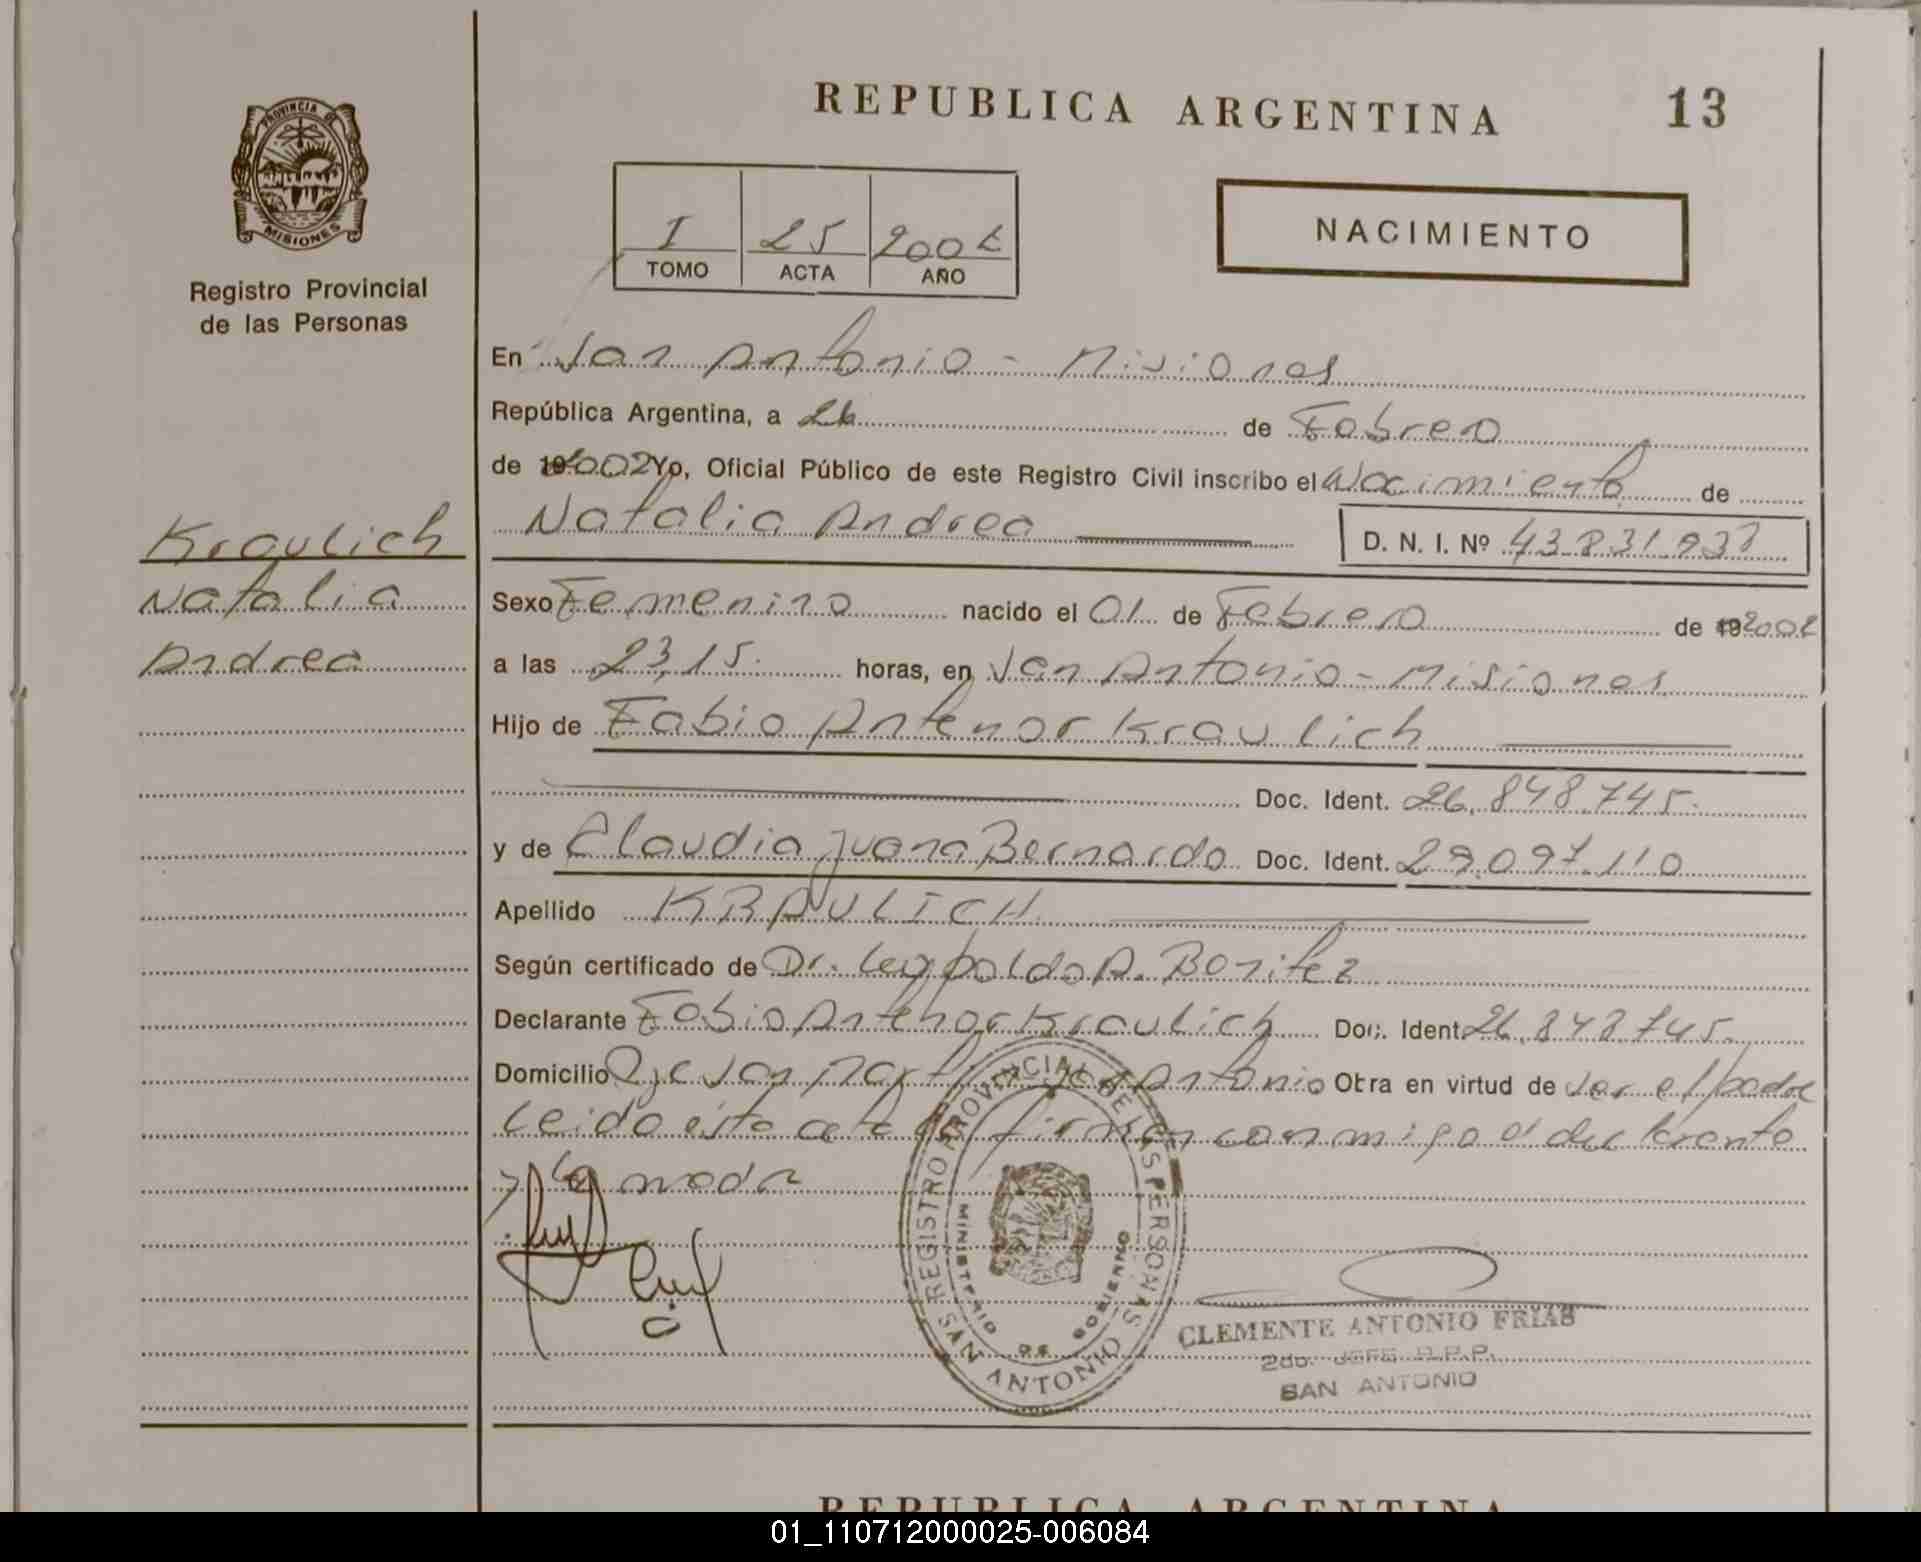 REPUBLICA ARGENTINA 13
PROVINCIA DE
MISIONES
Registro Provincial
de las Personas
I 25 2002
TOMO ACTA AÑO
NACIMIENTO
En San Antonio - Misiones
República Argentina, a 26 de Febrero
de 2002 Yo, Oficial Público de este Registro Civil inscribo el Nacimiento de
Natalia Andrea D. N. I. Nº 43.831.93
Kraulich
Natalia
Andrea
Sexo Femenino nacido el 01 de Febrero de 192002
a las 23,15. horas, en San Antonio - Misiones
Hijo de Fabio Antenor Kraulich
Doc. Ident. 26.848.745.
y de Claudia Juana Bernardo Doc. Ident. 29.097.110
Apellido KRAULICH
Según certificado de Dr. Leopoldo A. Benitez
Declarante Fabio Antenor Kraulich Doc. Ident. 26.848.745.
Domicilio San Antonio Otra en virtud de ser el padre
Leido esta acta la firman conmigo el declarante
y la madre
REGISTRO PROVINCIAL DE LAS PERSONAS
MINISTERIO DE GOBIERNO
SAN ANTONIO
CLEMENTE ANTONIO FRIAS
2do. JEFE R.P.P.
SAN ANTONIO
REPUBLICA ARGENTINA
01_110712000025-006084